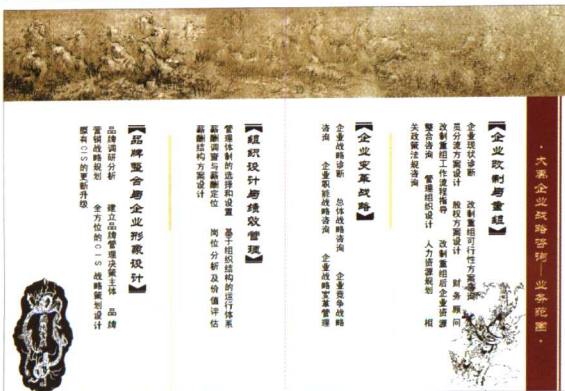 ·大禹企业战略咨询——业务范围·
【企业改制与重组】
企业现状诊断 改制重组可行性方案咨询
员分流方案设计 股权方案设计 财务顾问
改制重组工作流程指导 改制重组后企业资源
整合咨询 管理组织设计 人力资源规划 相
关政策法规咨询
【企业变革战略】
企业战略诊断 总体战略咨询 企业竞争战略
咨询 企业职能战略咨询 企业战略变革管理
【组织设计与绩效管理】
管理体制的选择和设置 基于组织结构的运行体系
薪酬调查与薪酬定位 岗位分析及价值评估
薪酬结构方案设计
【品牌整合与企业形象设计】
品牌调研分析 建立品牌管理决策主体 品牌
营销战略规划 全方位的CIS战略策划设计
原有CIS的更新升级